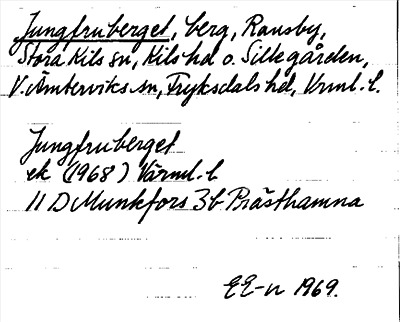 Jungfruberget, berg, Ransby,
Stora Kils sn, Kils hd o. Sillegården,
V. Ämterviks sn, Fryksdals hd, Vrml. l.
Jungfruberget
ek (1968) Värml. l
11 D Munkfors 3b Prästhamna
EE-n 1969.